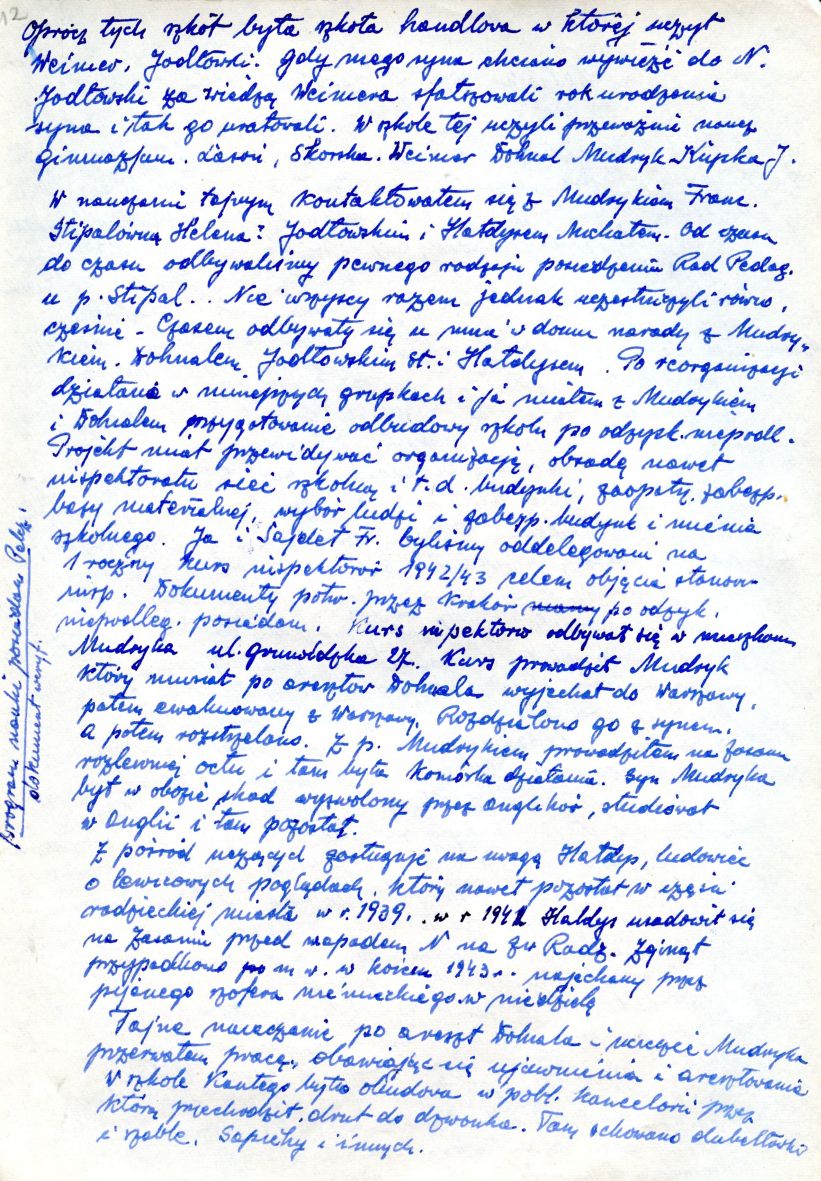 12
Oprócz tych szkół była szkoła handlowa w której uczył
Weimer, Jodłowski. Gdy mego syna chciano wywieźć do N.
Jodłowski za wiedzą Weimera sfałszowali rok urodzenia
syna i tak go uratowali. W szkole tej uczyli przeważnie naucz
gimnazjum. Lasoń, Skorska. Weimer Dohnal Mudryk Kupka J.
W nauczaniu tajnym kontaktowałem się z Mudrykiem Franc.
Stipalówną Helena? Jodłowskim i Hałdysem Michałem. Od czasu
do czasu odbywaliśmy pewnego rodzaju posiedzenia Rad Pedag.
u p. Stipal.. Nie wszyscy razem jednak uczestniczyli równo,
cześnie. Czasem odbywały się u mnie w domu narady z Mudry-
kiem. Dohnalem, Jodłowskim St. i Hałdysem. Po reorganizacji
działania w mniejszych grupkach i ja miałem z Mudrykiem
i Dohnalem przygotowanie odbudowy szkoły po odzysk. niepodl.
Projekt miał przewidywać organizację, obsadę nawet
inspektoratu sieć szkolną i t.d. budynki, zaopatrz. zabezp.
bazy materialnej, wybór ludzi i zabezp. budynk i mienia
szkolnego. Ja i Sajdeł Fr. byliśmy oddelegowani na
1 roczny kurs inspektorów 1942/43 celem objęcia stanow
insp. Dokumenty potw. przez Kraków po odzysk.
niepodleg. posiadam. Kurs inspektorów odbywał się w mieszkaniu
Mudryka ul. Grunwaldzka 27. Kurs prowadził Mudryk
który musiał po aresztow Dohnala wyjechać do Warszawy,
potem ewakuowany z Warszawy. Rozdzielono go z synem,
a potem rozstrzelano. Z p. Mudrykiem prowadziłem na Zasaniu
rozlewnię octu i tam była komórka działania. Syn Mudryka
był w obozie skąd wyzwolony przez Anglików, studiował
w Anglii i tam pozostał.
Z pośród uczących zasługuje na uwagę Hałdys, ludowiec
o lewicowych poglądach, który nawet pozostał w części
radzieckiej miasta w r. 1939. w r 1941 Hałdys usadowił się
na Zasaniu przed napadem N na Zw Radz. Zginął
przypadkowo m w. w końcem 1943 r. najechany przez
pijanego szofera niemieckiego w niedzielę
Tajne nauczanie po areszt Dohnala i ucieczce Mudryka
przerwałem pracę, obawiając się ujawnienia i aresztowania
W szkole Kantego była obudowa w pobl. kancelarii przez
którą przechodził drut do dzwonka. Tam schowano dubeltówki
i szable. Sapiehy i innych.
Program nauki posiadam Pelcz.
dokument weryf.